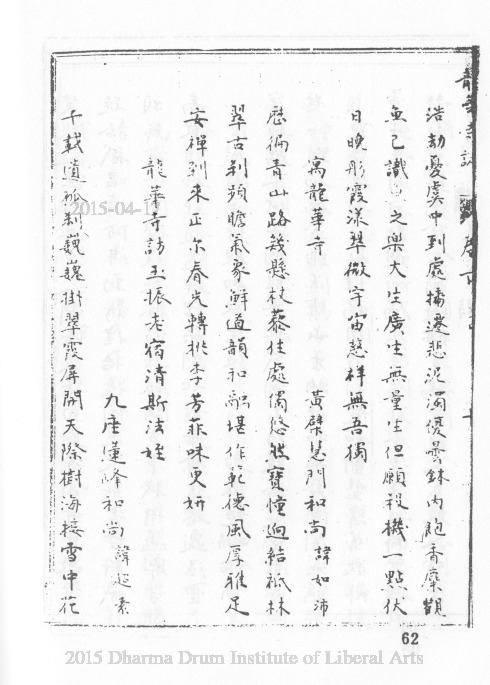 龍華寺誌
浩劫憂虞中到處播遷悲泥濁優曇鉢內飽香糜觀
魚已識魚之樂大生廣生無量生但願殺機一點伏
日晚彤霞漾翠微宇宙慈祥無吾獨
寓龍華寺 黃檗慧門和尚 諱如沛
歷徧青山路幾懸杖藜住處偶悠然寶幢迥結祇林
翠古剎頻瞻氣象鮮道韻和融堪作範德風厚雅足
安禪到來正尔春光轉桃李芳菲味更妍
龍華寺訪玉振老宿清斯法姪
九座蓮峰和尚 諱超素
千載遺孤剎巍巍掛翠霞屏開天際樹海接雪中花
62
2015-04-1
2015 Dharma Drum Institute of Liberal Arts